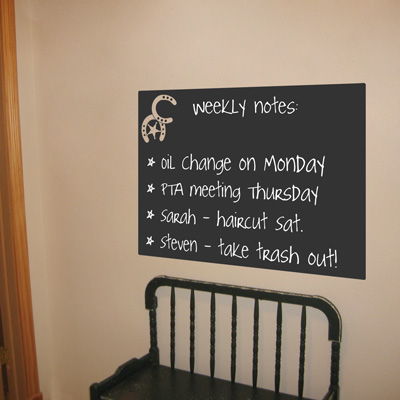 weekly notes:
* oil change on Monday
* PTA meeting Thursday
* sarah - haircut sat.
* steven - take trash out!